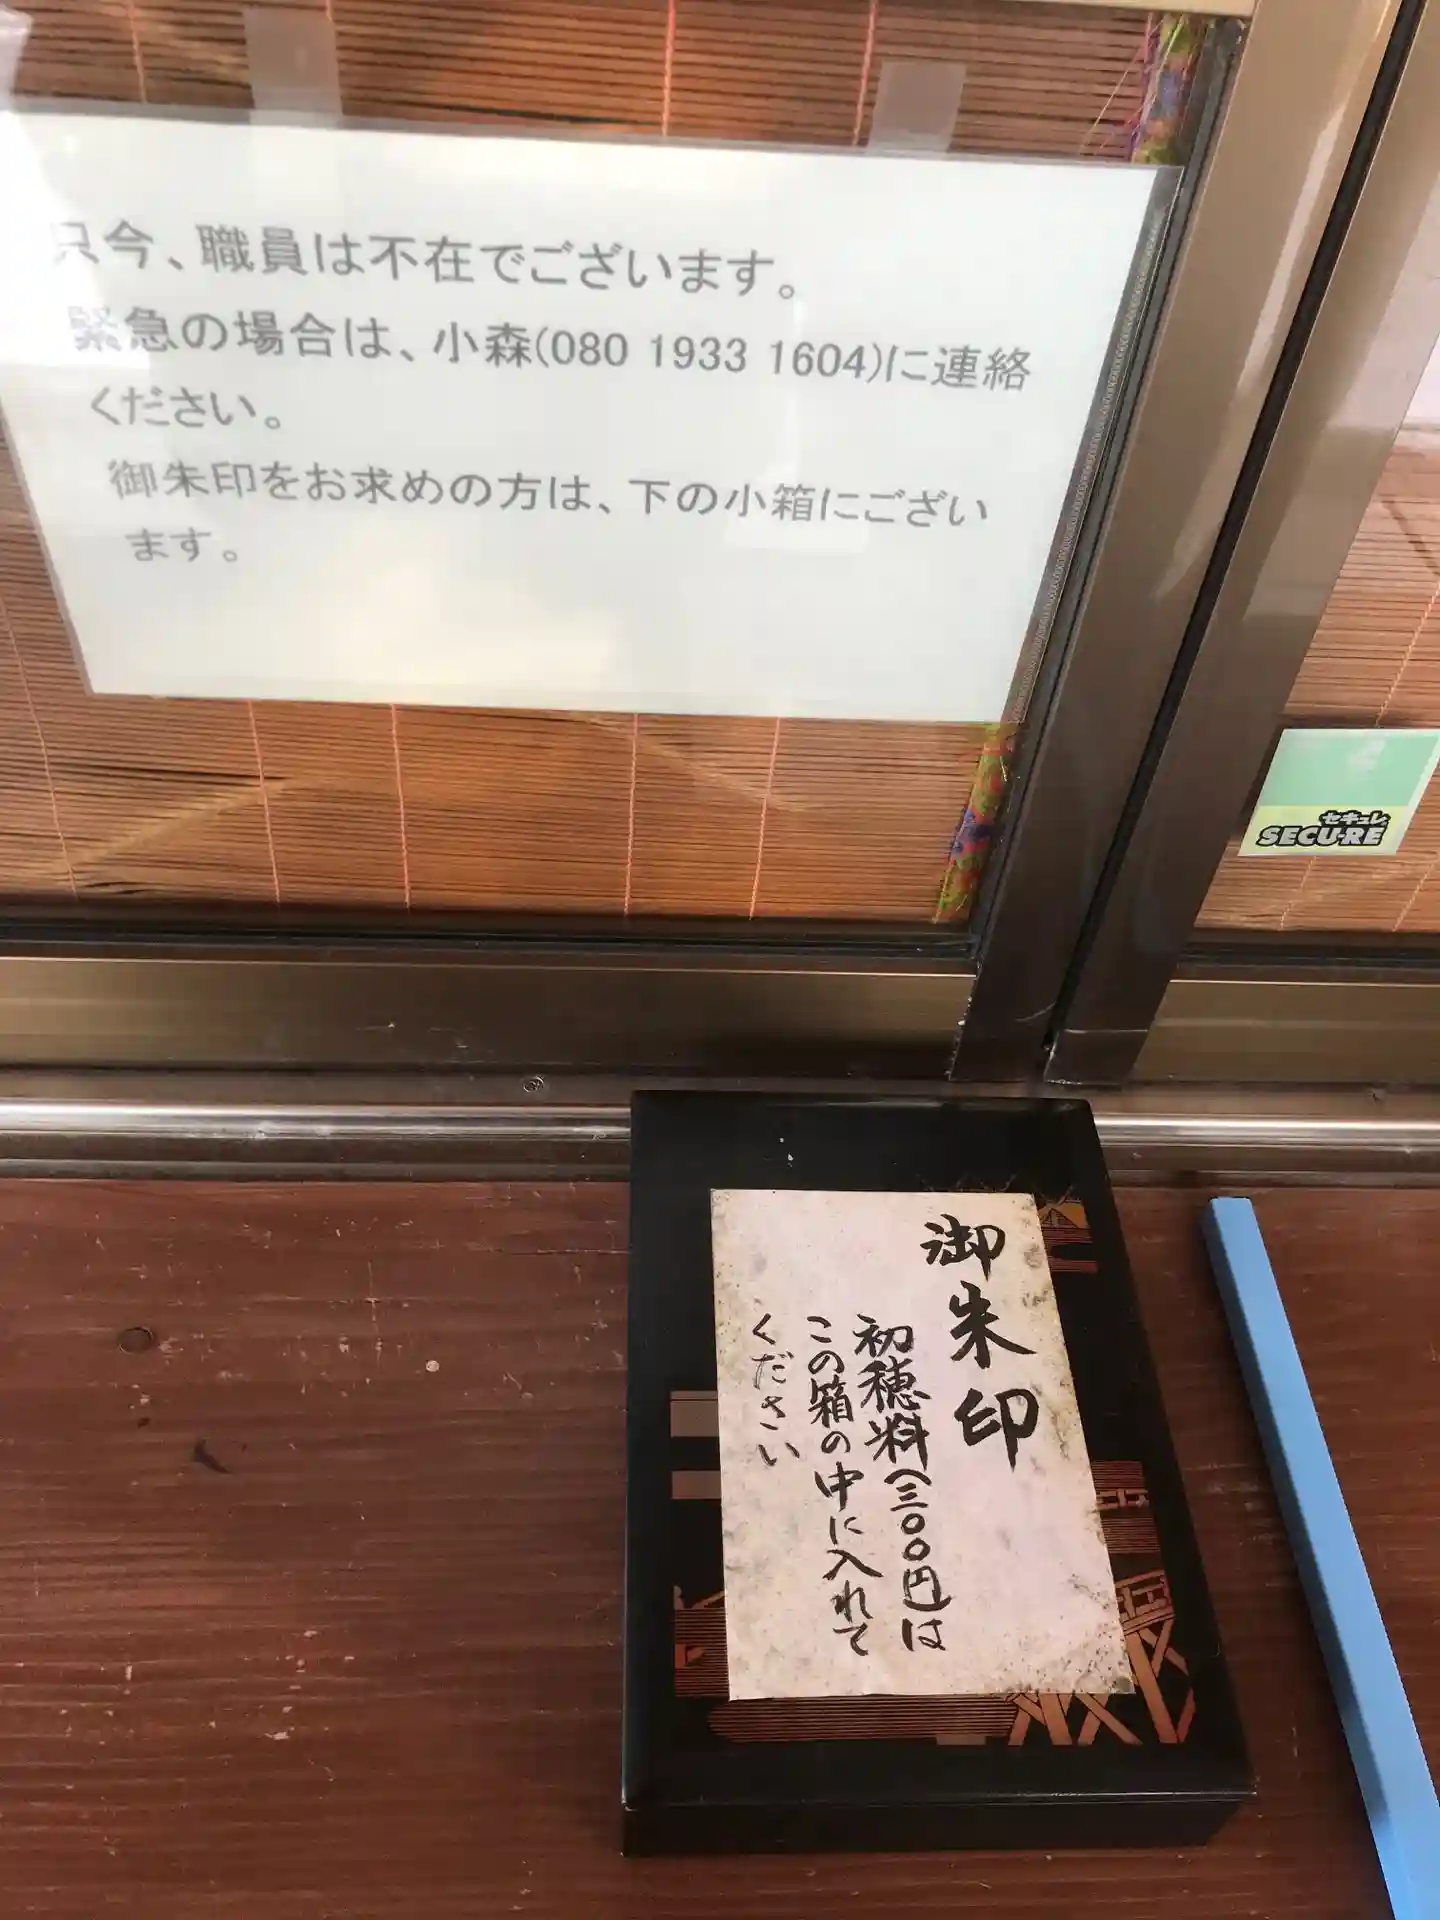 只今、職員は不在でございます。
緊急の場合は、小森(080 1933 1604)に連絡
ください。
御朱印をお求めの方は、下の小箱にござい
ます。
セキュレ
SECU-RE
御朱印
初穂料(三〇〇円)は
この箱の中に入れて
ください